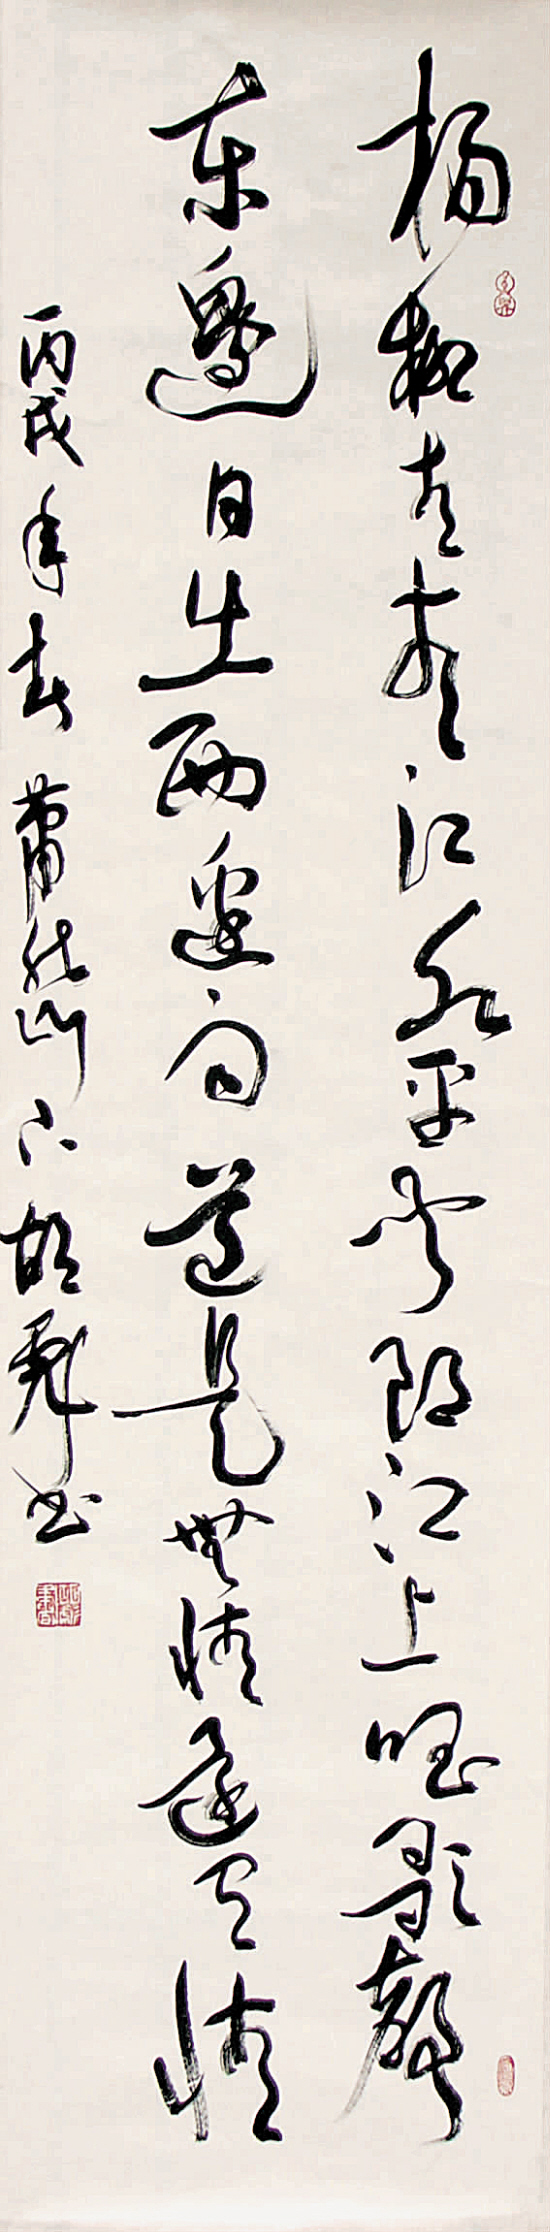 楊柳青青江水平聞郎江上唱歌聲
東邊日出西邊雨道是無情還有情
丙戌年春蕭然山下胡書